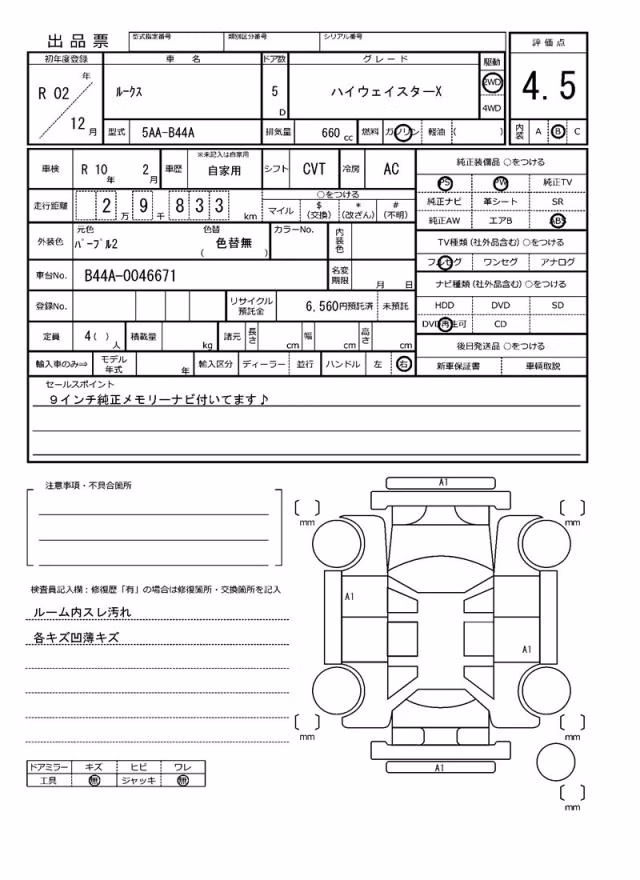 出品票
型式指定番号 類別区分番号 シリアル番号
評価点
初年度登録 車名 ドア数 グレード 駆動
R 02 年 12 月
ルークス
5 D
ハイウェイスターX
2WD
4WD
4.5
型式 5AA-B44A 排気量 660 cc 燃料 ガソリン 軽油 ( )
内装 A B C
車検 R 10 年 2 月 車歴 ※未記入は自家用 自家用 シフト CVT 冷房 AC
走行距離 2 万 9 千 8 3 3 km
○をつける
マイル $ (交換) * (改ざん) # (不明)
外装色 元色 パープル2 色替 色替無 ( ) カラーNo. 内装色
車台No. B44A-0046671 名変期限 月 日
登録No. リサイクル預託金 6,560円預託済 未預託
定員 4( ) 人 積載量 kg 諸元 長さ cm 幅 cm 高さ cm
輸入車のみ⇒ モデル年式 年 輸入区分 ディーラー 並行 ハンドル 左 右
純正装備品 ○をつける
PS PW 純正TV
純正ナビ 革シート SR
純正AW エアB ABS
TV種類 (社外品含む) ○をつける
フルセグ ワンセグ アナログ
ナビ種類 (社外品含む) ○をつける
HDD DVD SD
DVD再生可 CD
後日発送品 ○をつける
新車保証書 車輌取説
セールスポイント
9インチ純正メモリーナビ付いてます♪
注意事項・不具合箇所
検査員記入欄：修復歴「有」の場合は修復箇所・交換箇所を記入
ルーム内スレ汚れ
各キズ凹薄キズ
ドアミラー キズ ヒビ ワレ
工具 無 ジャッキ 無
A1
mm mm
A1
A1
mm mm
A1
mm